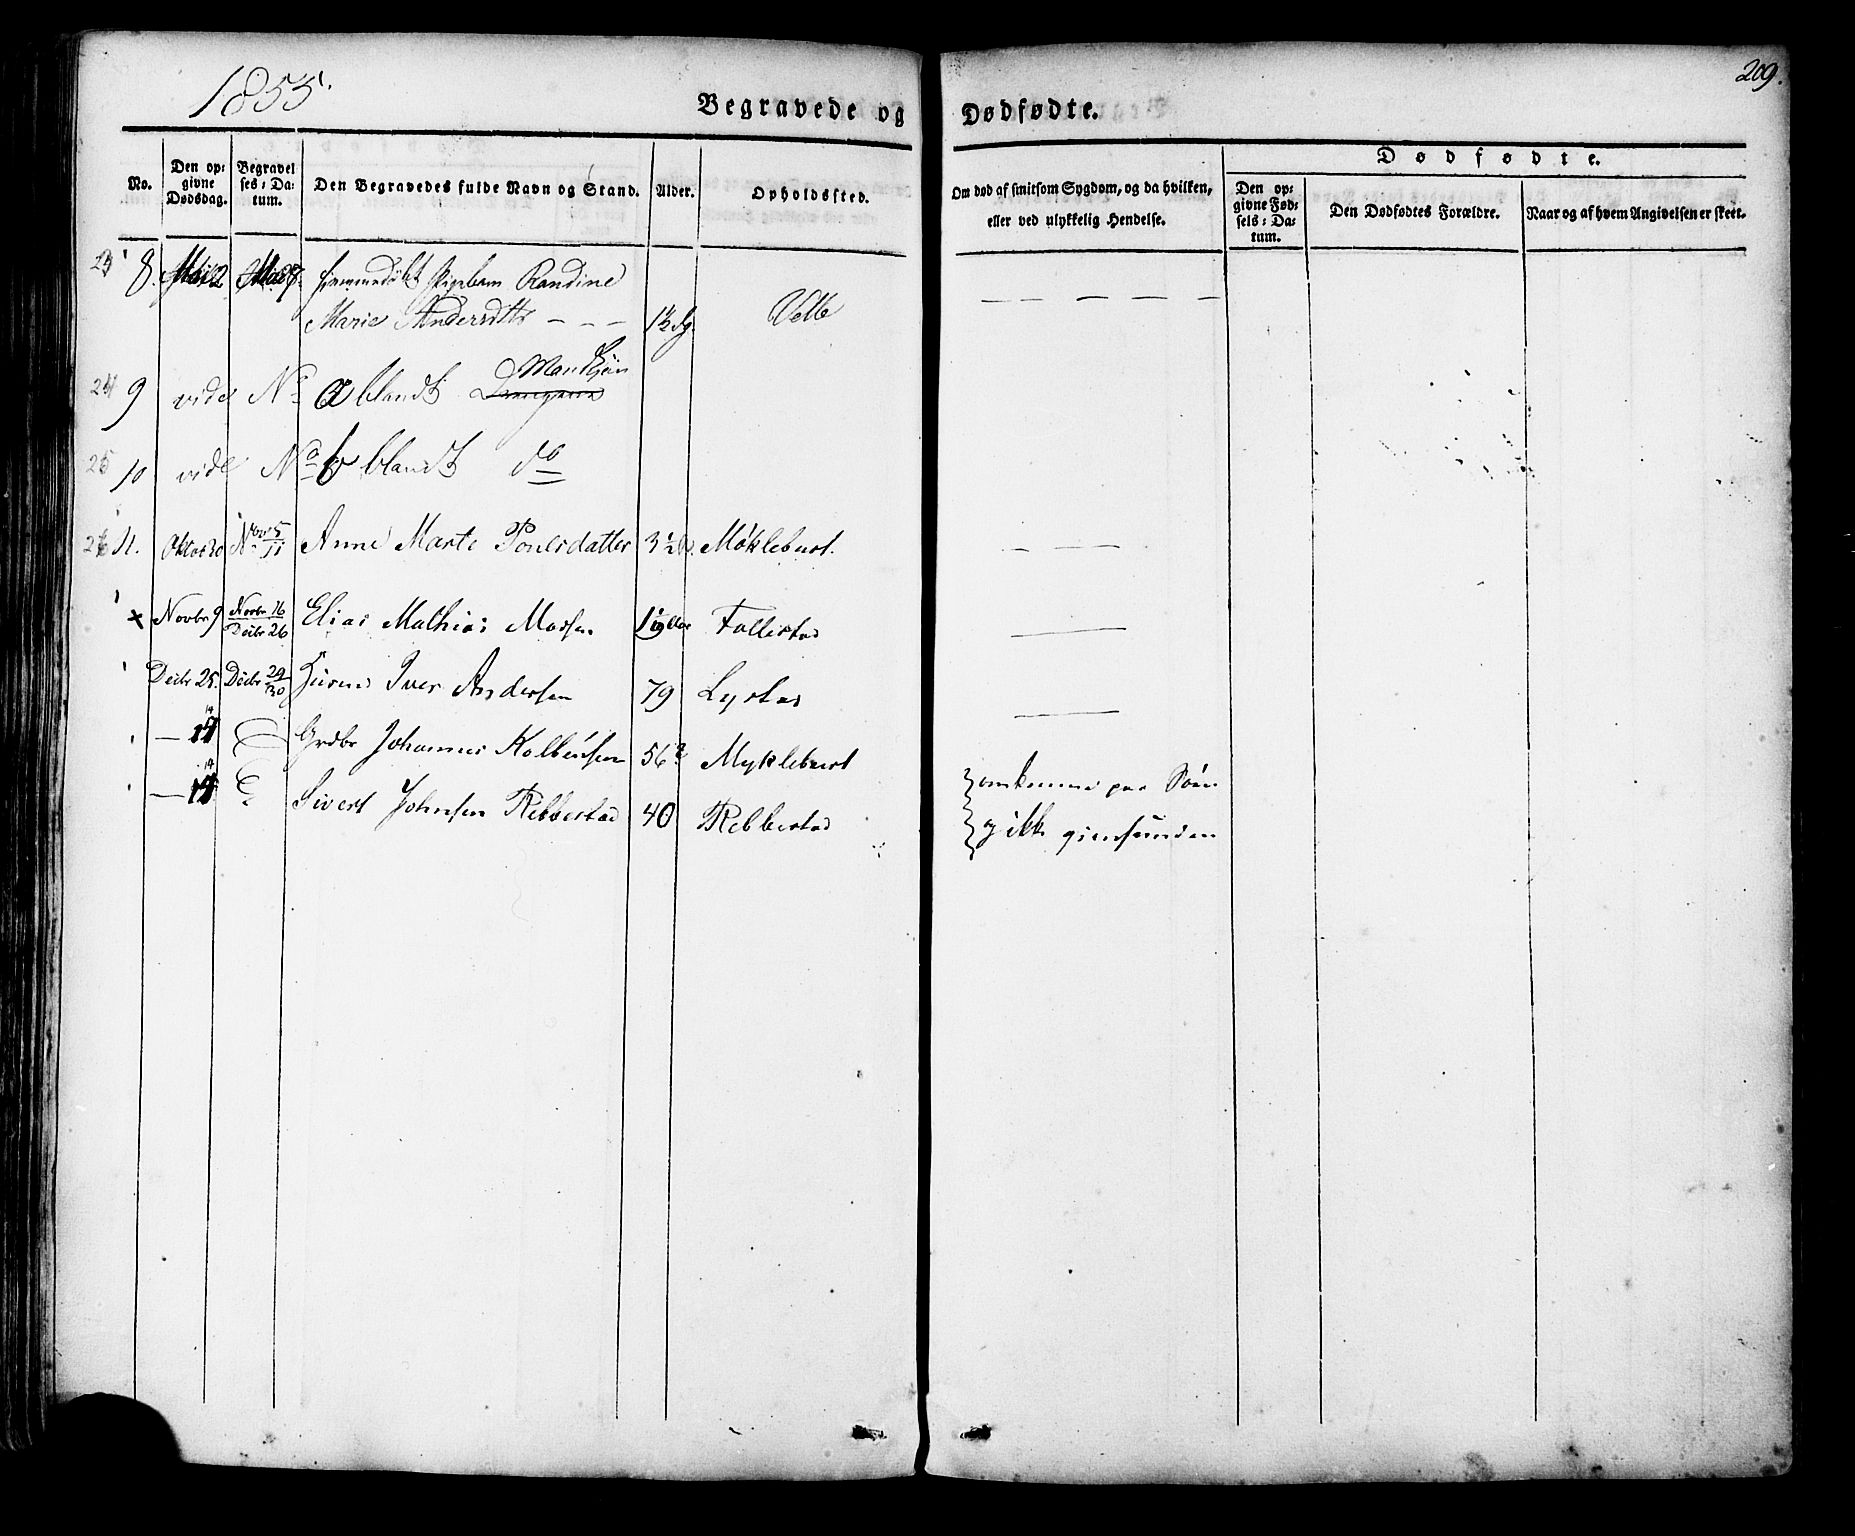 1855.
209.
Begravede og Dødfødte.
No.
Den op: givne Dødsdag.
Begravel ses: Da: tum.
Den Begravedes fulde Navn og Stand.
Alder.
Opholdssted.
Om død af smitsom Sygdom, og da hvilken, eller ved ulykkelig Hendelse.
Dødfødte.
Den op: givne Fød: sels: Da: tum.
Den Dødfødtes Forældre.
Naar og af hvem Angivelsen er skeet.
23 8. Mai 2 Mai hjemmedøbt Pigebarn Randine
Marie Andersdtr - - - 1½ dg. Velle
24 9 vide No a blandt Mandkjøn
25 10 vide No b blandt do
26 11. Oktbr 30 Novr 5 11 Anne Marte Poulsdatter 3½ Møklebust.
+ Novbr 9 Novbr 16 Decbr 26 Elias Mathias Massen Follestad
Decbr 25. Decbr 29 30 Iver Andersen 79 Lystad
— 14 14 Grdbr Johannes Kolbensen 56 Myklebust
— 14 14 Sivert Johnsen Rebbestad 40 Rebbestad
omkomne paa Søen
og ikke gienfunden